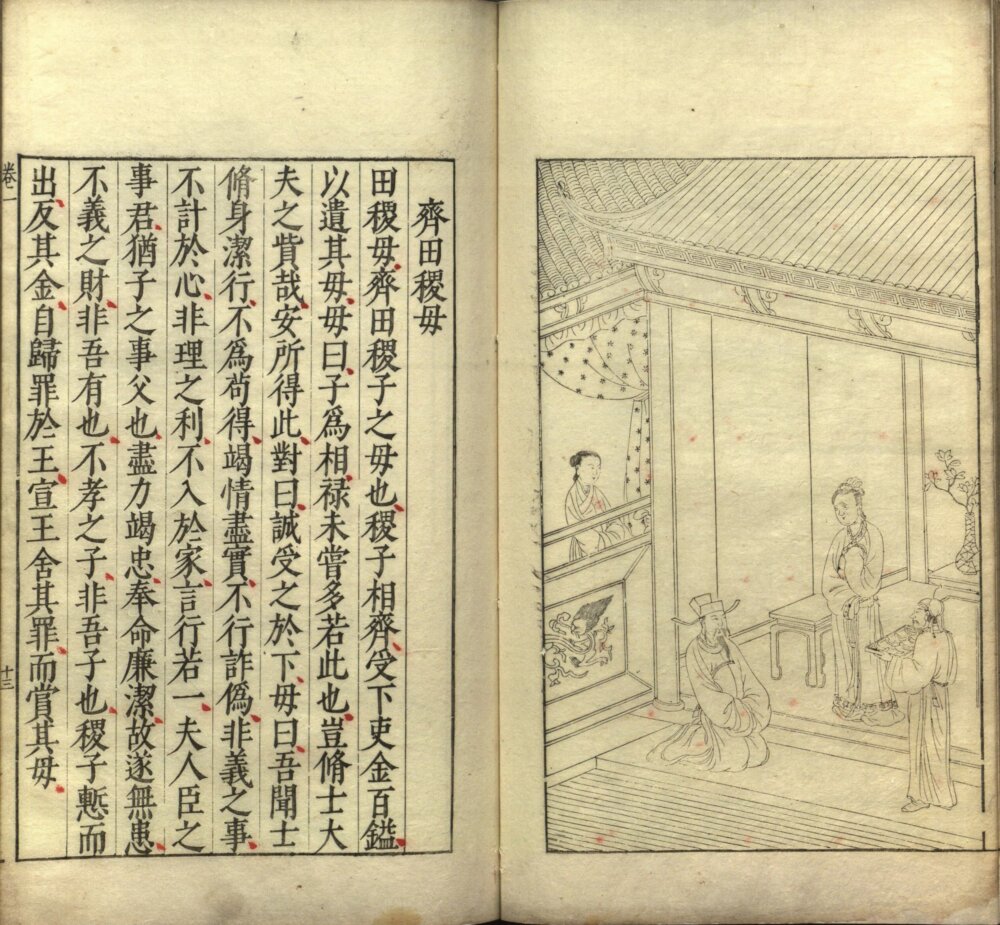 齊田稷母
田稷母齊田稷子之母也稷子相齊受下吏金百鎰
以遺其母母曰子爲相祿未嘗多若此也豈脩士大
夫之貲哉安所得此對曰誠受之於下母曰吾聞士
脩身潔行不爲苟得竭情盡實不行詐僞非義之事
不計於心非理之利不入於家言行若一夫人臣之
事君猶子之事父也盡力竭忠奉命廉潔故遂無患
不義之財非吾有也不孝之子非吾子也稷子慙而
出反其金自歸罪於王宣王舍其罪而賞其母
卷一
十三